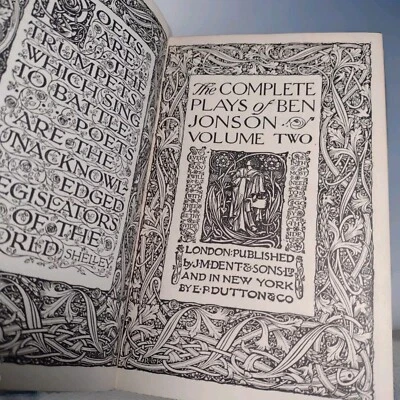 POETS
ARE THE
TRUMPETS
WHICH SING
TO BATTLE
POETS
ARE THE
UNACKNOWL
EDGED
LEGISLATORS
OF THE
WORLD
SHELLEY
The COMPLETE
PLAYS of BEN
JONSON
VOLUME TWO
LONDON: PUBLISHED
by J.M. DENT & SONS LTD
AND IN NEW YORK
BY E. P. DUTTON & CO